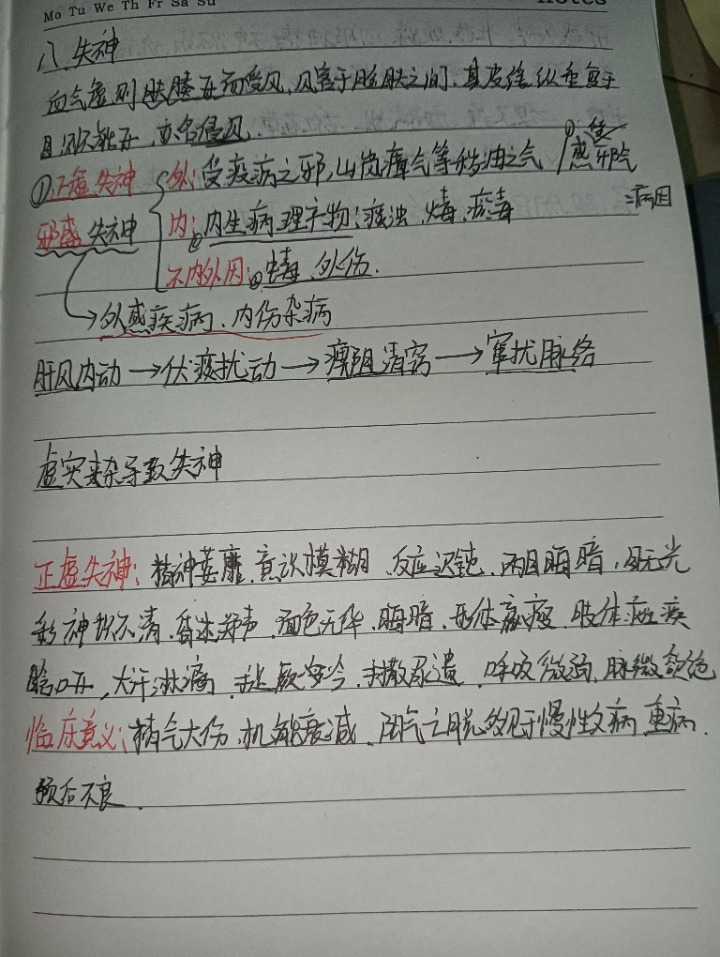 Mo Tu We Th Fr Sa Su
notes
八、失神
血气虚则肤腠开而受风,风客于睑肤之间,其皮缓纵垂覆于
目,则不能开,亦名侵风.
①正虚失神 外:受疫疠之邪,山岚瘴气等秽浊之气 感邪气
邪盛失神 内:内生病理产物:痰浊、毒、瘀毒 病因
不内外因: 毒、外伤.
外感疾病、内伤杂病
肝风内动→伏痰扰动→瘀阻清窍→窜扰脉络
虚实夹杂导致失神
正虚失神:精神萎靡,意识模糊,反应迟钝,两目晦暗,目无光
彩,神识不清,昏迷郑声,面色无华,晦暗,形体羸瘦,肢体
口开,大汗淋漓,手足厥冷,手撒尿遗,呼吸微弱,脉微欲绝
临床意义:精气大伤,机能衰减,阳气亡脱,多见于慢性久病重病.
预后不良.